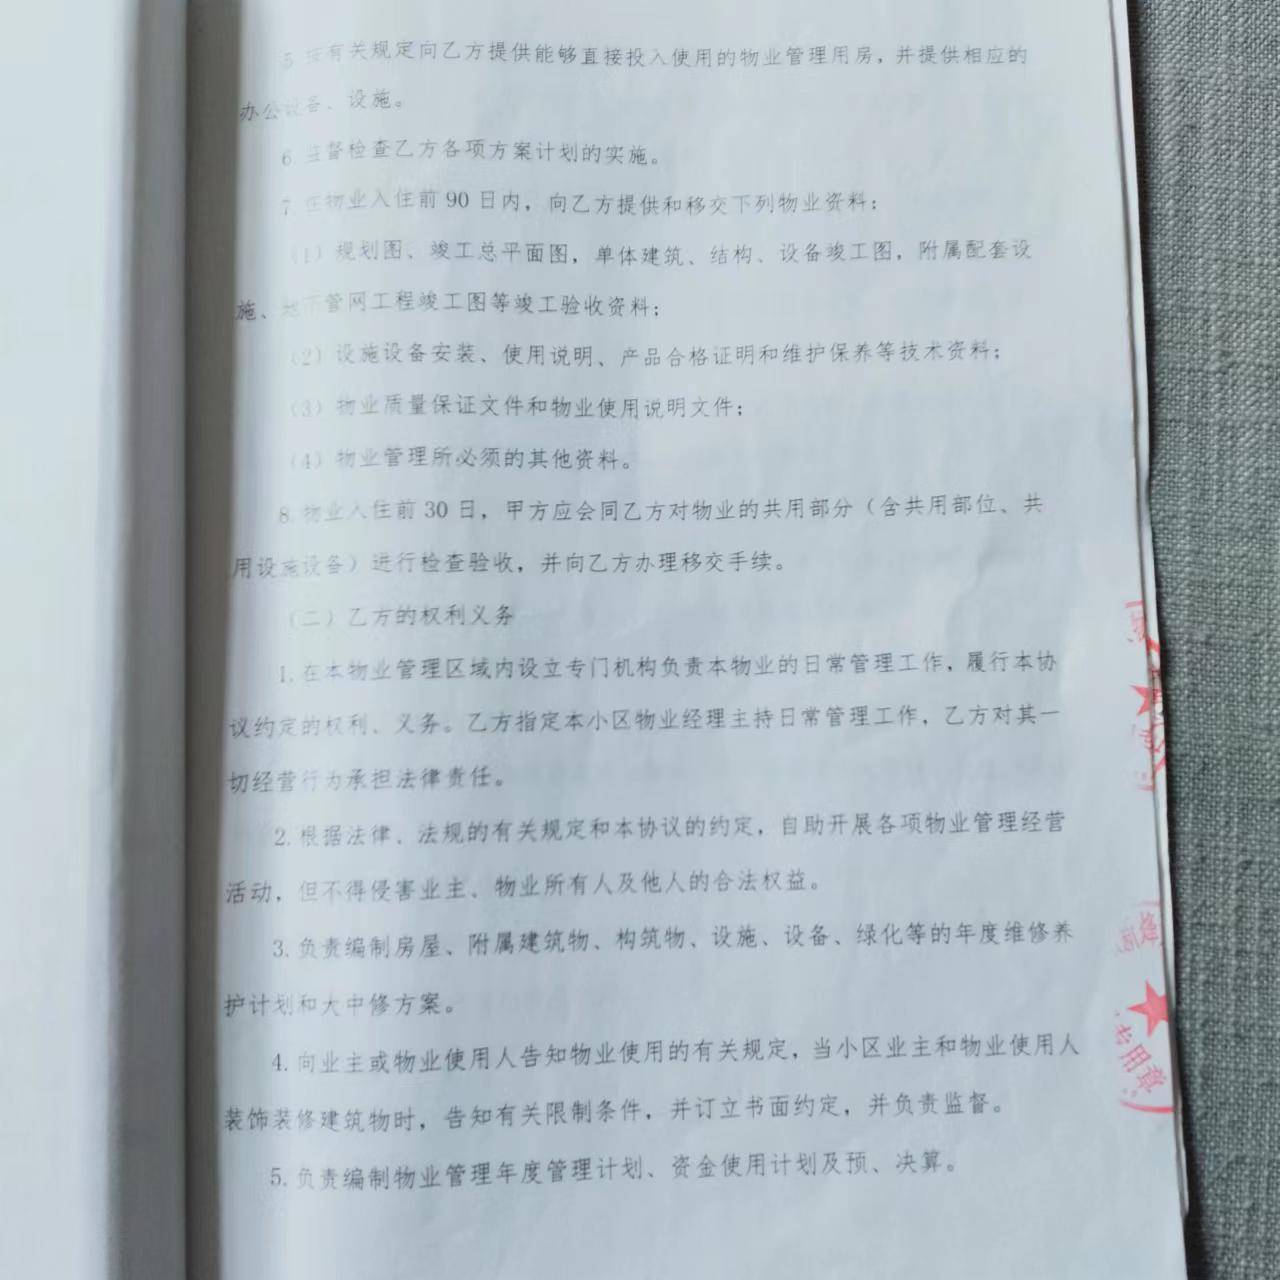 5.按有关规定向乙方提供能够直接投入使用的物业管理用房，并提供相应的
办公设备、设施。
6.监督检查乙方各项方案计划的实施。
7.在物业入住前90日内，向乙方提供和移交下列物业资料：
（1）规划图、竣工总平面图，单体建筑、结构、设备竣工图，附属配套设
施、地下管网工程竣工图等竣工验收资料；
（2）设施设备安装、使用说明、产品合格证明和维护保养等技术资料；
（3）物业质量保证文件和物业使用说明文件；
（4）物业管理所必须的其他资料。
8.物业入住前30日，甲方应会同乙方对物业的共用部分（含共用部位、共
用设施设备）进行检查验收，并向乙方办理移交手续。
（二）乙方的权利义务
1.在本物业管理区域内设立专门机构负责本物业的日常管理工作，履行本协
议约定的权利、义务。乙方指定本小区物业经理主持日常管理工作，乙方对其一
切经营行为承担法律责任。
2.根据法律、法规的有关规定和本协议的约定，自助开展各项物业管理经营
活动，但不得侵害业主、物业所有人及他人的合法权益。
3.负责编制房屋、附属建筑物、构筑物、设施、设备、绿化等的年度维修养
护计划和大中修方案。
4.向业主或物业使用人告知物业使用的有关规定，当小区业主和物业使用人
装饰装修建筑物时，告知有关限制条件，并订立书面约定，并负责监督。
5.负责编制物业管理年度管理计划、资金使用计划及预、决算。
专用章